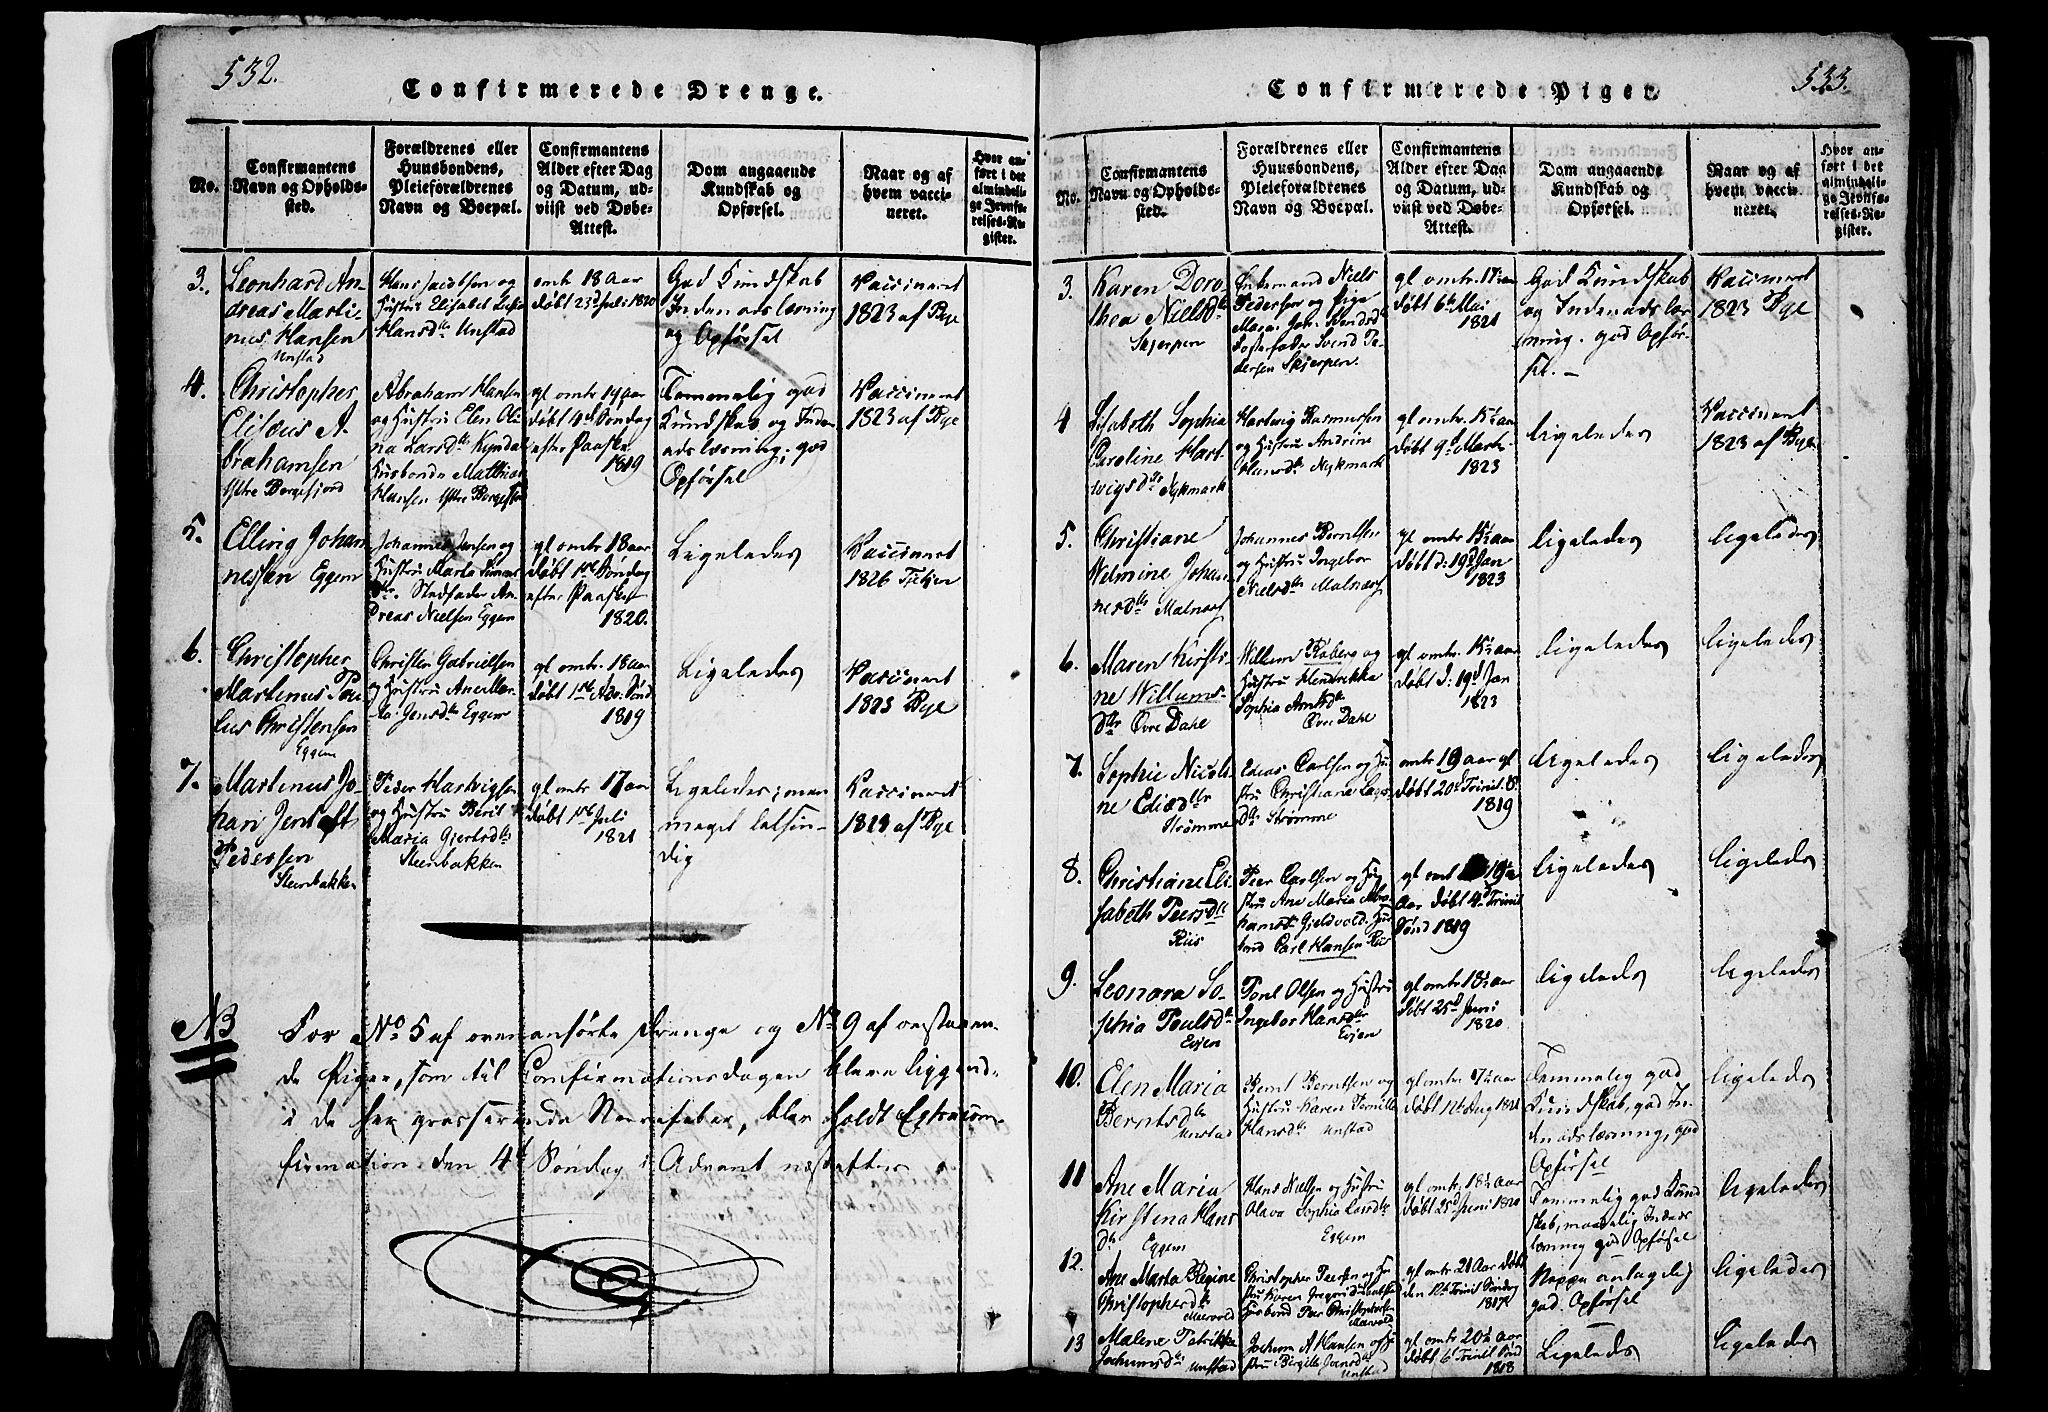 532.
Confirmerede Drenge.
No.
Confirmantens
Navn og Opholds-
sted.
Forældrenes eller
Huusbondens,
Pleieforældrenes
Navn og Boepæl.
Confirmantens
Alder efter Dag
og Datum, ud-
viist ved Døbe-
Attest.
Dom angaaende
Kundskab og
Opførsel.
Naar og af
hvem vacci-
neret.
Hvor an-
ført i det
almindeli-
ge Jevnfø-
relses-Re-
gister.
3.
Leonhard An-
dreas Marti-
nus Hansen
Unstad
Hans Jacobsen og
Hustru Elisabet
Hansdtr Unstad
omtr 18 Aar
døbt 23d Juli 1820
God Kundskab
Indenadslæsning
og Opførsel
Vaccineret
1823 af Bye
4.
Christopher
Elisæus A-
brahamsen
Ystre Borgefjord
Abraham Hansen
og Hustru Elen Oli-
na Larsdtr
Husbonde Matthias
Hansen Ystre
gl omtr 19 aar
døbt 4d Søndag
efter Paaske
1819
Temmelig god
Kundskab og Inden-
adslæsning, god
Opførsel
Vaccineret
1823 af Bye
5.
Elling Johan-
nessen Eggem
Johannes Jensen og
Hustru Marta Simons
dtr. Stedfader An-
dreas Nielsen Eggem
gl omtr 18 aar
døbt 1ste Søndag
efter Paaske
1820.
Ligeledes
Vaccineret
1826
6.
Christopher
Martinus Pau-
lus Christensen
Eggem
Christen Gabrielsen
og Hustru
Jensdtr Eggem
gl omtr. 18 aar
døbt 1ste Adv. Sønd
1819
Ligeledes
Vaccineret
1823 Bye
7.
Martinus Jo-
han Jentoft
Pedersen
Steenbakken
Peder Hartvigsen
og Hustru Berit
Maria Gjertsdtr
Steenbakken
gl omtr. 17 aar
døbt 1ste Juli
1821
Ligeledes; men
meget letsin-
dig
Vaccineret
1823 af Bye
NB
For No 5 af ovenanførte Drenge og No 9 af ovstaaen-
de Piger, som til Confirmationsdagen bleve liggend-
i de her grasserende Nervefeber, blev holdt Extracon-
firmation den 4d Søndag i Advent næstefter
533.
Confirmerede Piger.
No.
Confirmantens
Navn og Opholds-
sted.
Forældrenes eller
Huusbondens,
Pleieforældrenes
Navn og Boepæl.
Confirmantens
Alder efter Dag
og Datum, ud-
viist ved Døbe-
Attest.
Dom angaaende
Kundskab og
Opførsel.
Naar og af
hvem vacci-
neret.
Hvor an-
ført i det
almindeli-
ge Jevnfø-
relses-Re-
gister.
3.
Karen Doro-
thea Nielsdtr
Skjerpen
Enkemand Niels
Pedersen og Pige
Maria Joh.
Fosterfader Svend Pe-
dersen Skjerpen.
gl omtr. 17½ aar
døbt 6te Mai
1821
God Kundskab
og Indenadslæs-
ning. god Opfør-
sel. —
Vaccineret
1823 Bye
4
Lisabeth Sophia
Caroline Hart-
vigsdtr Nykmark
Hartvig Rasmussen
og Hustru Andrine
Hansdtr Nykmark
gl omtr. 15½ aar
døbt 9d Marts
1823
ligeledes
Vaccineret
1823 af Bye
5.
Christiane
Velmine Johan-
nesdtr Malnæs
Johannes Berntsen
og Hustru Ingebor
Nielsdtr Malnæs
gl omtr 15½ aar
døbt d: 19d Jan
1823
ligeledes
ligeledes
6.
Maren Kirsti-
ne Willums-
dtr Øvre Dahl
Willum Røberg og
Hustru Hendrikka
Sophia
Øvre Dahl
gl omtr. 15½ aar
døbt d: 19d Jan
1823
ligeledes
ligeledes
7.
Sophie Nicoli-
ne Ediasdtr
Strømme
Edias Carlsen og Hu-
stru Christiana
dtr Strømme
omtr 19 aar gl
døbt 20d Trinit. S.
1819
ligeledes
ligeledes
8.
Christiane Eli-
sabeth Peersdtr
Riis
Peer Carlsen og Hu-
stru Ane Maria Abra-
hamsdtr
Carl Hansen Riis
gl omtr 19
Aar døbt 4d Trinit
Sønd 1819
ligeledes
ligeledes
9.
Leonora So-
phia Poulsdtr
Evjen
Poul Olsen og Hustru
Ingebor Hansdtr
Evjen
gl omtr 18½ aar
døbt 25d Juni
1820
ligeledes
ligeledes
10.
Elen Maria
Berntsdtr
Unstad
Bernt Berntsen og
Hustru Karen Pernille
Hansdtr Unstad
gl omtr. 17½ aar
døbt 12t Aug 1821
Temmelig god
Kundskab, god In-
denadslæsning, god
Opførsel
ligeledes
11
Ane Maria
Kirstena Hans
dtr Eggem
Hans Nielsen og Hustru
Olava Sophia Larsdtr
Eggem
gl omtr. 18½ aar
døbt 25d Juni 1820
Temmelig god Kund-
skab, maadelig Indenads
læsning god Opførsel
ligeledes
12.
Ane Marta Regine
Christopherdtr
Mærvold
Christopher Peersen og Hu
stru Karen
Husbond Peer Christophersen
Mærvold
gl omtr. 21 Aar døbt
den 12te Trinit Søndag
1817
Noppe antagelig
god. Opførsel
ligeledes
13
Malene Patrikke
Jochumsdtr
Unstad
Jochum A Hansen og Hu-
stru Birgitte Jonsdtr
Unstad
gl omtr. 20½ aar
døbt 6te Trinit Sønd
1818
Ligeleds
ligeledes